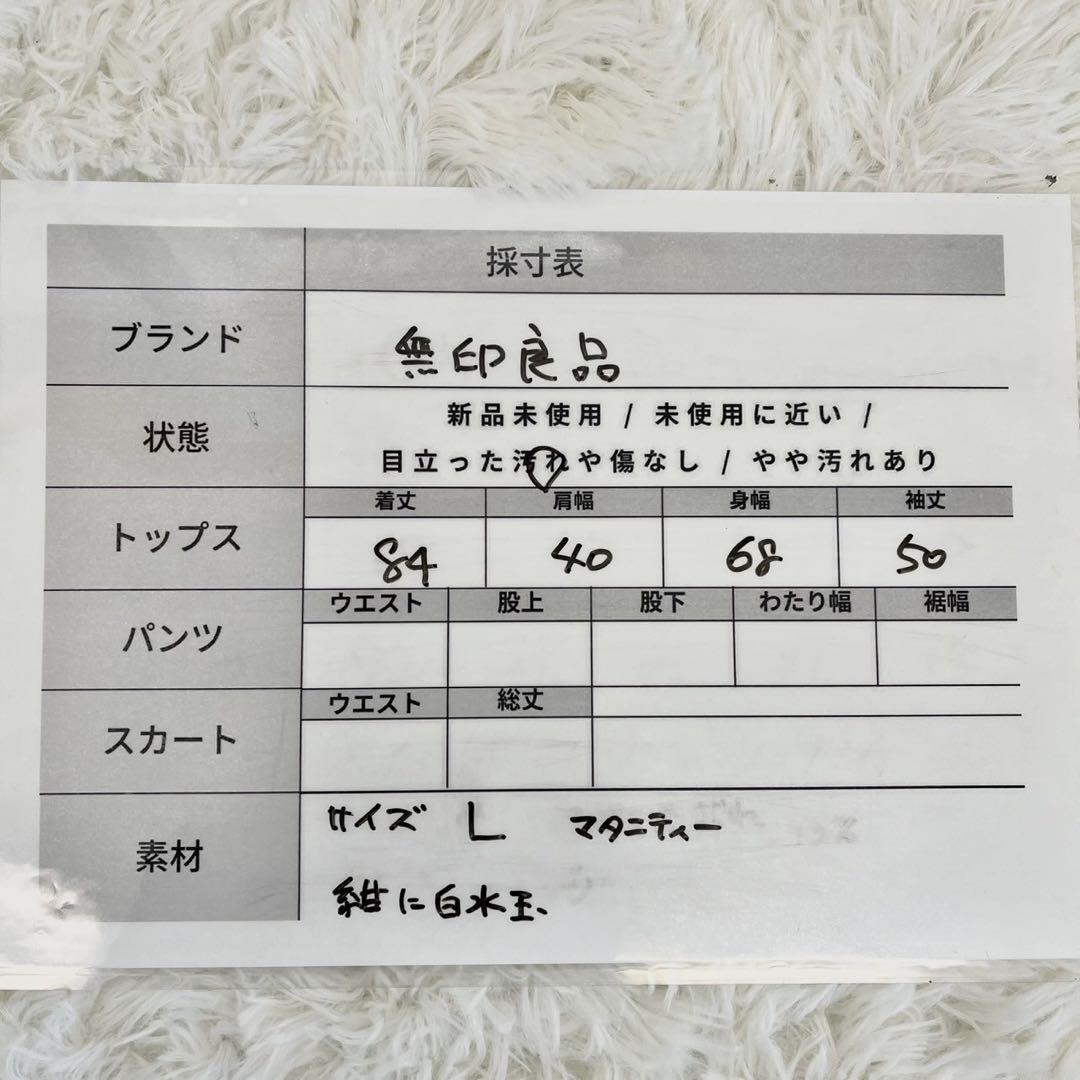 採寸表
ブランド 無印良品
状態 新品未使用 / 未使用に近い /
目立った汚れや傷なし / やや汚れあり
トップス 着丈 肩幅 身幅 袖丈
84 40 68 50
パンツ ウエスト 股上 股下 わたり幅 裾幅
スカート ウエスト 総丈
素材 サイズ L マタニティー
紺に白水玉、